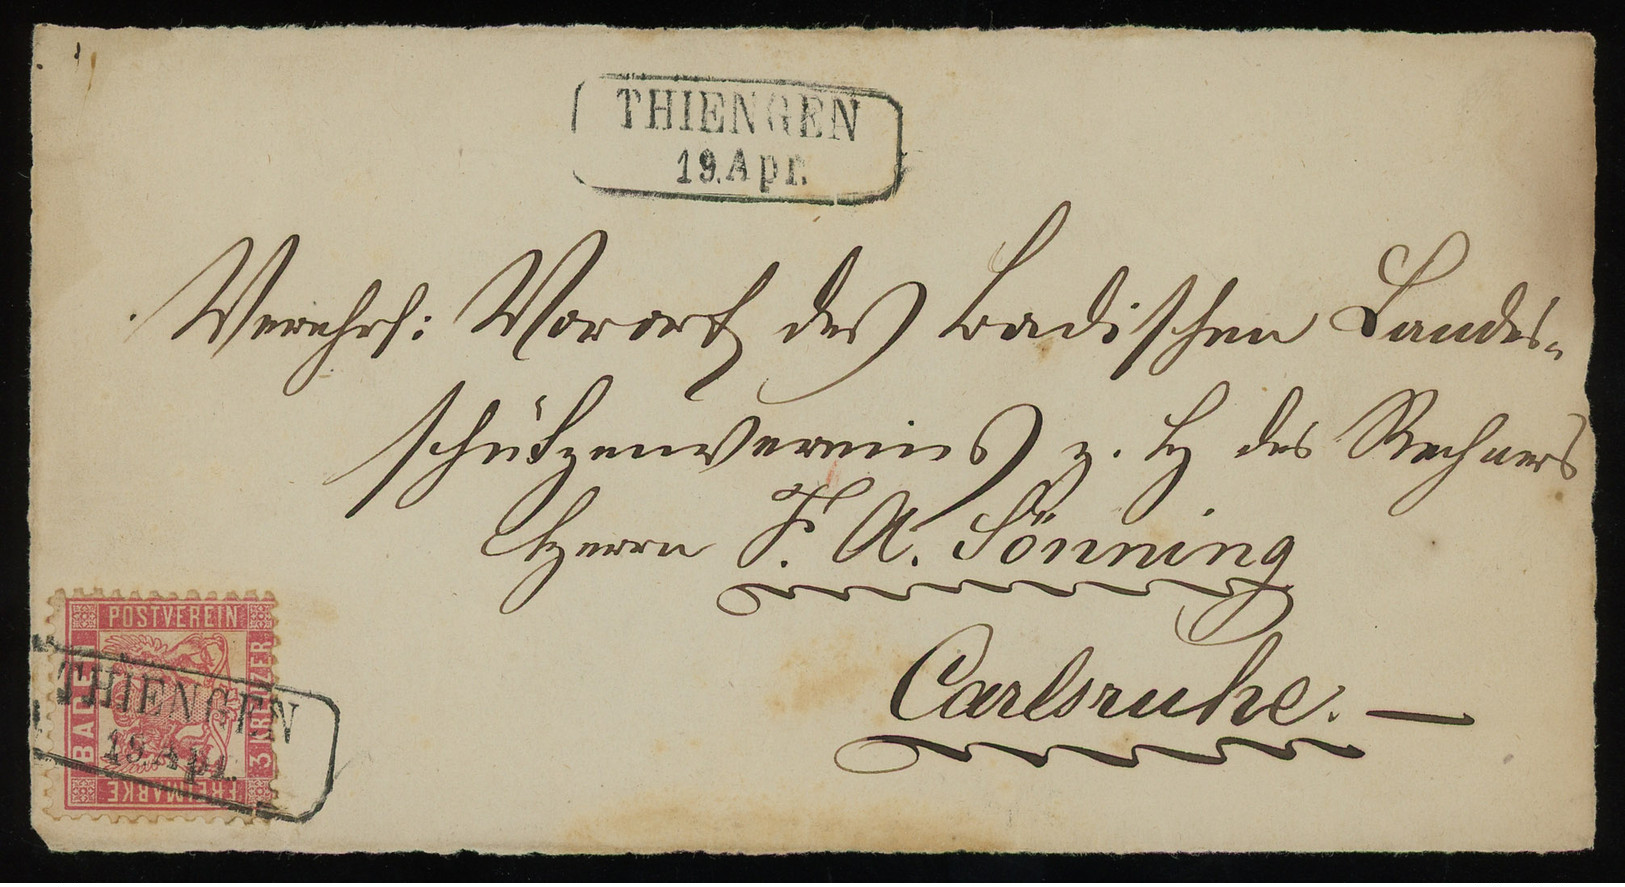 THIENGEN
19. Apr.
Verehrl: Vorort des badischen Landes-
schützenvereins z. H des Rechners
Herrn F. A. Sönning
Carlsruhe. —
POSTVEREIN
BADEN
3 KREUZER
FREIMARKE
THIENGEN
19. Apr.